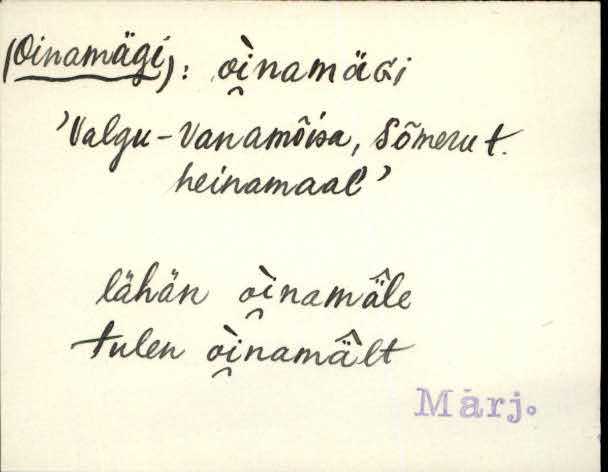 (Oinamägi): oì̯namäGi
'Valgu-Vanamõisa, Sõmeru t.
heinamaal'
lähän oì̯namä̂le
tulen oì̯namä̂lt
Märj.